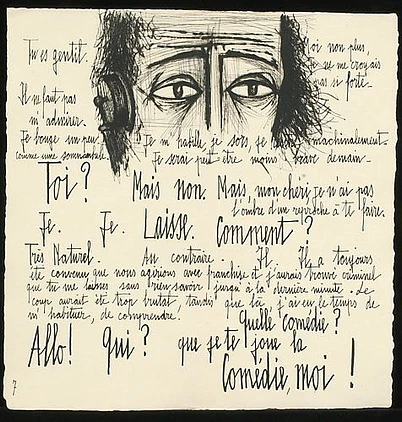 Tu es gentil.
Moi non plus,
je ne me croyais
pas si forte.
Il ne faut pas
m'admirer.
Je bouge un peu
comme une somnambule.
Je m'habille, je sors, je machinalement.
Je serai peut être moins brave demain.
Toi ? Mais non. Mais, mon chéri, je n'ai pas
l'ombre d'un reproche à te faire.
Je. Je. Laisse. Comment ?
Très Naturel. Au contraire. Il. Il a toujours
été convenu que nous agirions avec franchise et j'aurais trouvé criminel
que tu me laisses sans rien savoir jusqu'à la dernière minute. Le
coup aurait été trop brutal tandis que là j'ai eu le temps de
m'habituer, de comprendre.
Quelle comédie ?
Allo ! Qui ? que je te joue la
Comédie, moi !
7